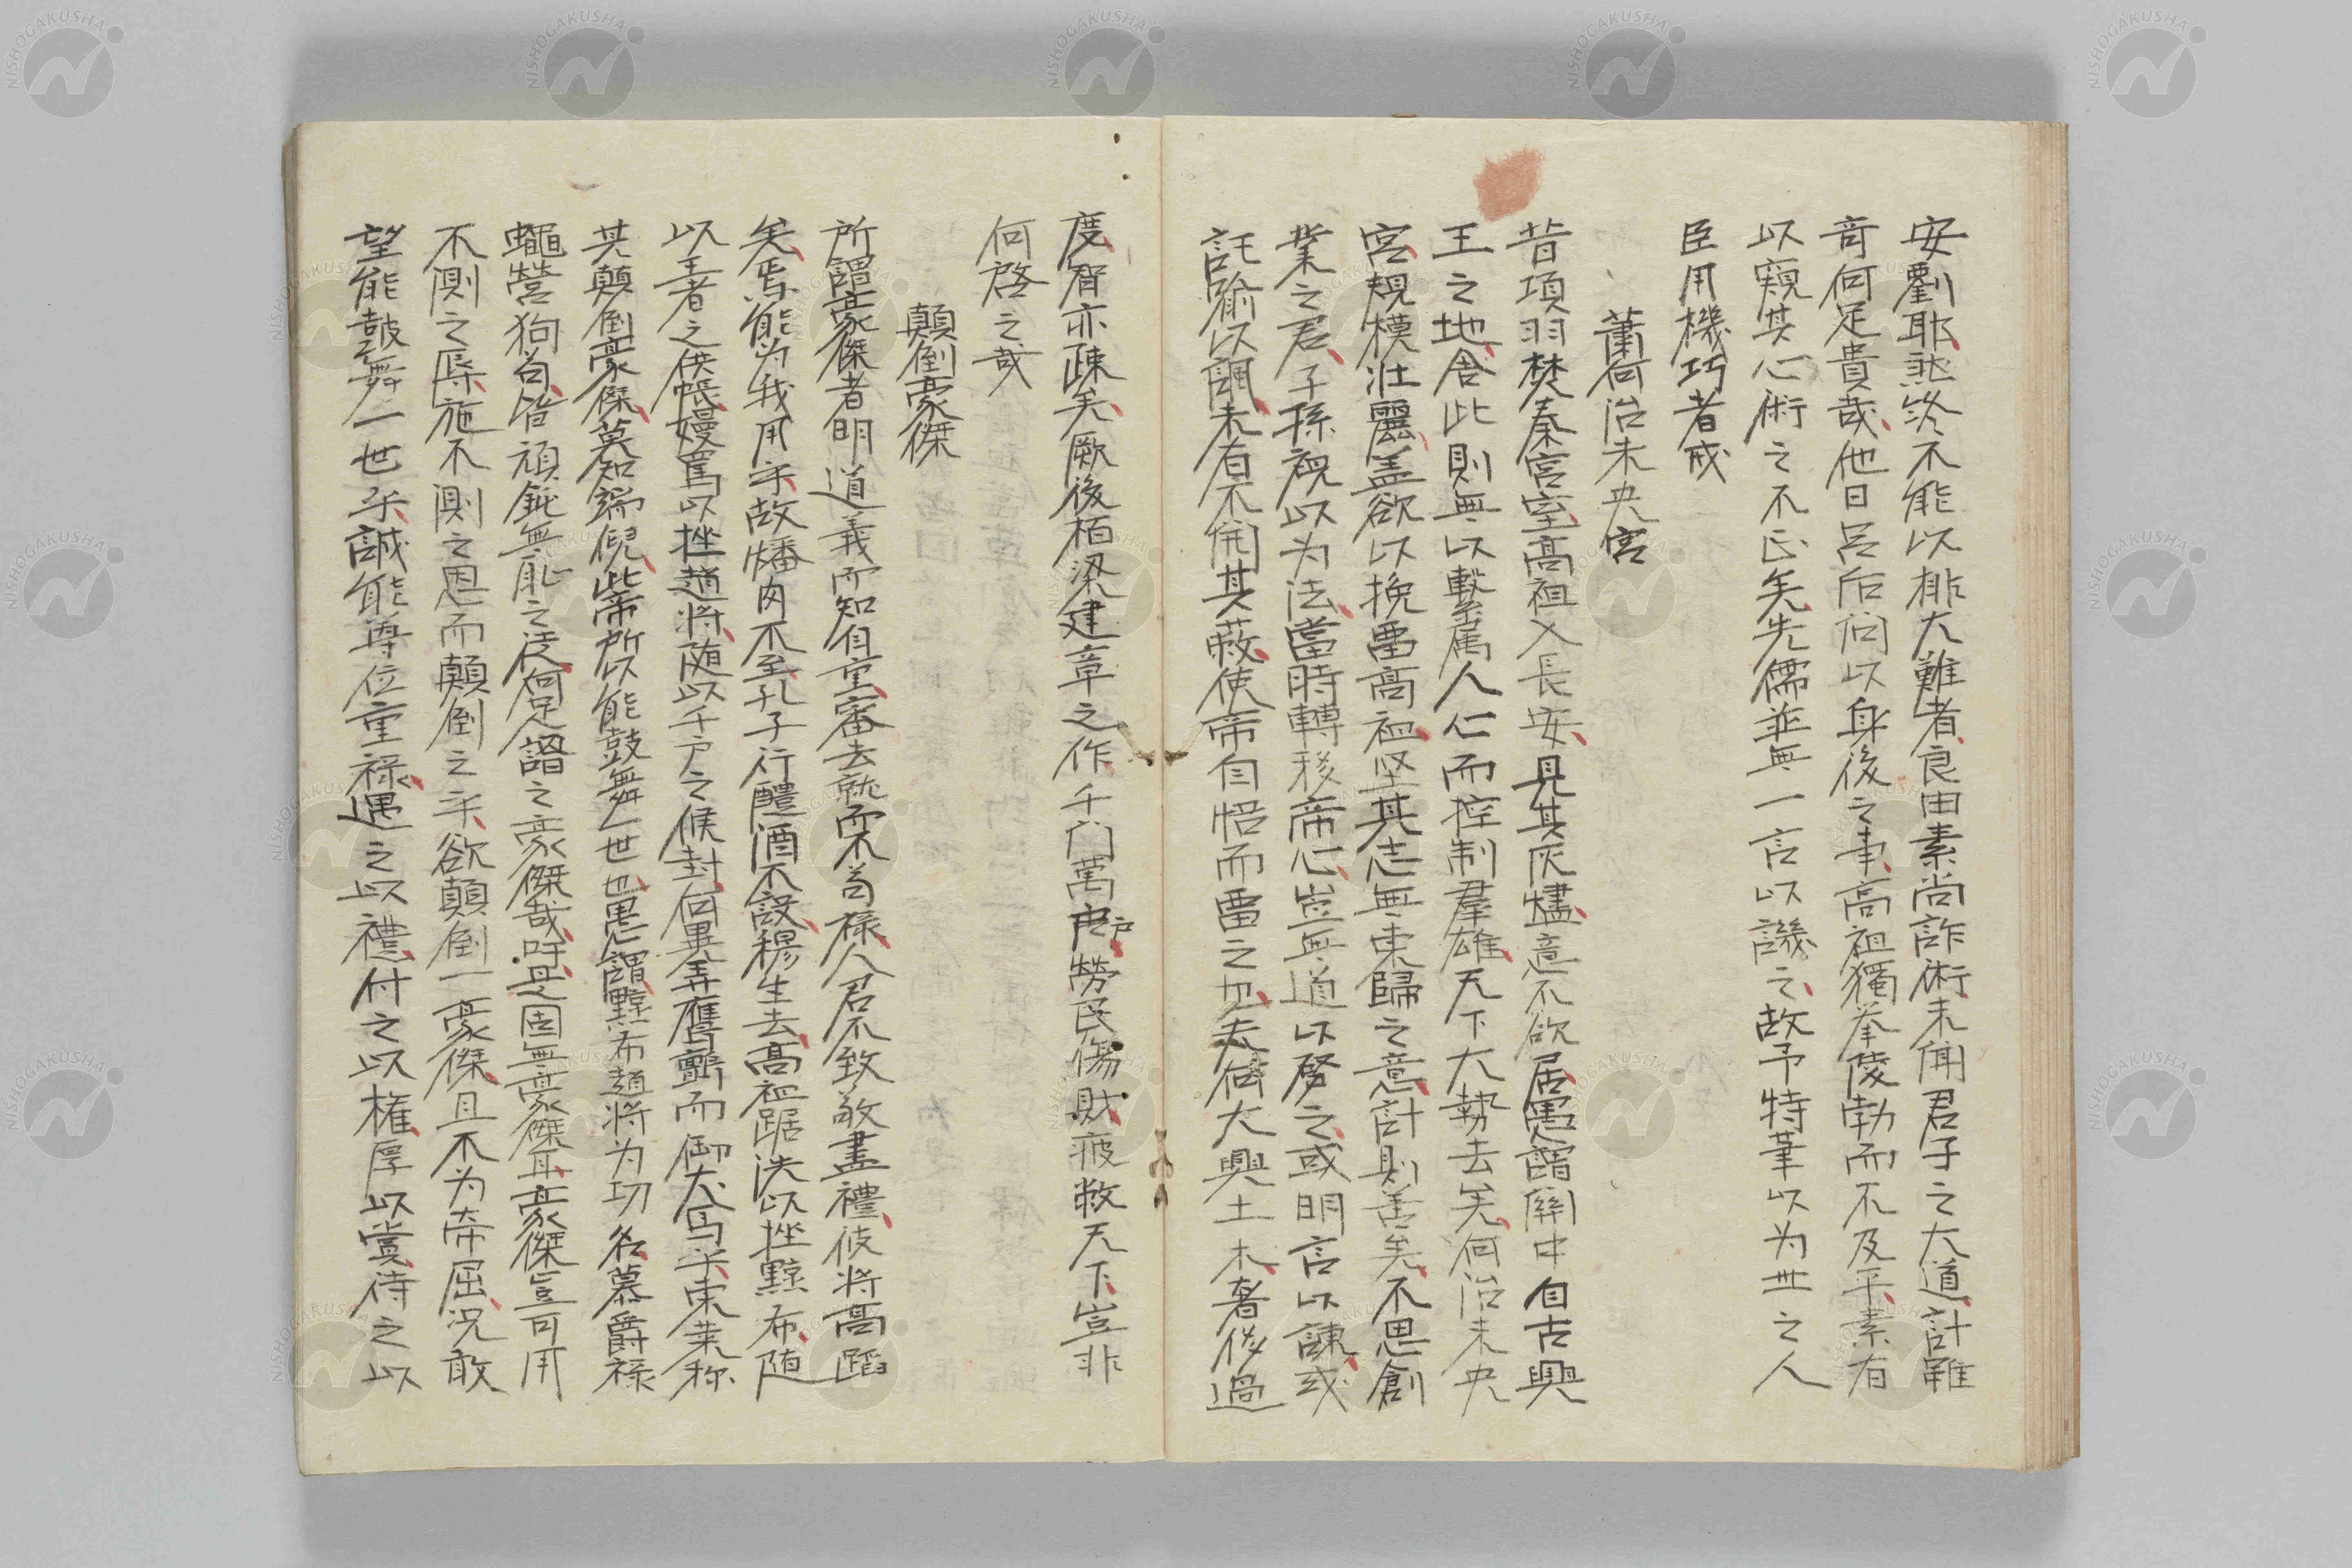 安劉耶然終不能以排大難者良由素尚詐術未聞君子之大道計雖
奇何足貴哉他日呂后問以身後之事高祖獨挙陵勃而不及平素有
以窺其心術之不正矣先儒並無一言以譏之故予特筆以为世之人
臣用機巧者戒
蕭何治未央宮
昔項羽焚秦宮室高祖入長安見其灰燼意不欲居愚謂関中自古興
王之地舎此則無以繋属人心而控制羣雄天下大勢去矣何治未央
宮規模壮麗盖欲以挽畱高祖坚其志無東歸之意計則善矣不思創
業之君子孫視以为法當時轉移帝心豈無道以啓之或明言以諫或
託喻以諷未有不開其蔽使帝自悟而畱之也夫何大興土木奢侈過
度君亦疎矣厥後栢梁建章之作千门萬户户勞民傷財疲敝天下豈非
何啓之哉
顛倒豪傑
所謂豪傑者明道義而知自重審去就而不苟禄人君不致敬盡禮彼将高蹈
矣焉能为我用乎故燔肉不至孔子行醴酒不設穆生去高祖踞洗以挫黥布随
以王者之供帳嫚罵以挫趙将随以千户之候封何異弄鷹鸇而御犬马乎東莱称
其顛倒豪傑莫知端倪此帝所以能鼓舞一世也愚謂黥布趙将为功名慕爵禄
蠅営狗苟皆頑鈍無耻之徒何足語之豪傑哉吁是固無豪傑耳豪傑豈可用
不測之辱施不測之恩而顛倒之乎欲顛倒一豪傑且不为帝屈况敢
望能鼓舞一世乎誠能尊位重禄遇之以禮付之以権厚以賞待之以
NISHOGAKUSHA